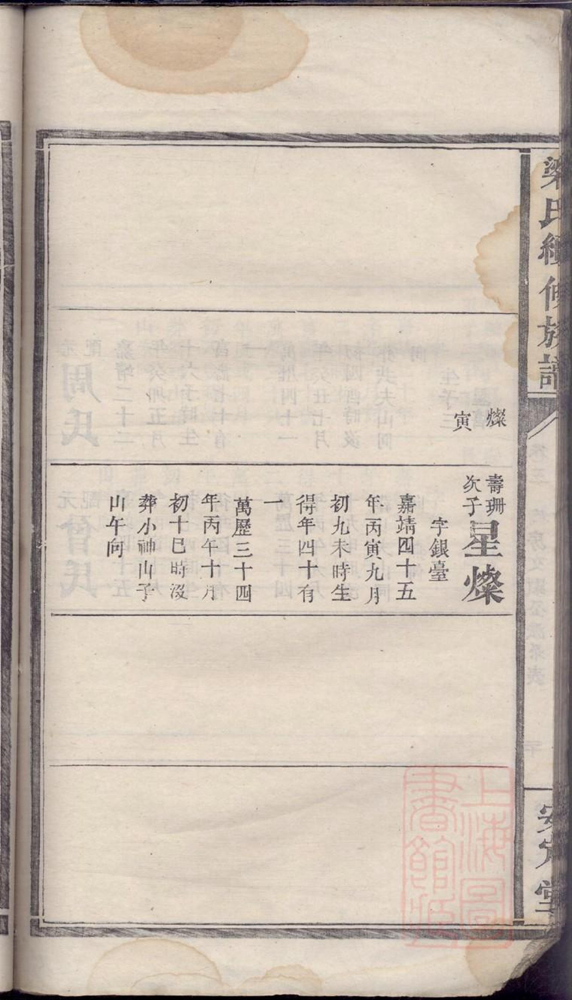 梁氏續修族譜
安定堂
燦
寅
壽珊
次子
星燦
字銀臺
嘉靖四十五
年丙寅九月
初九未時生
得年四十有
一
萬歷三十四
年丙午十月
初十巳時沒
葬小神山子
山午向
上海圖
書館藏